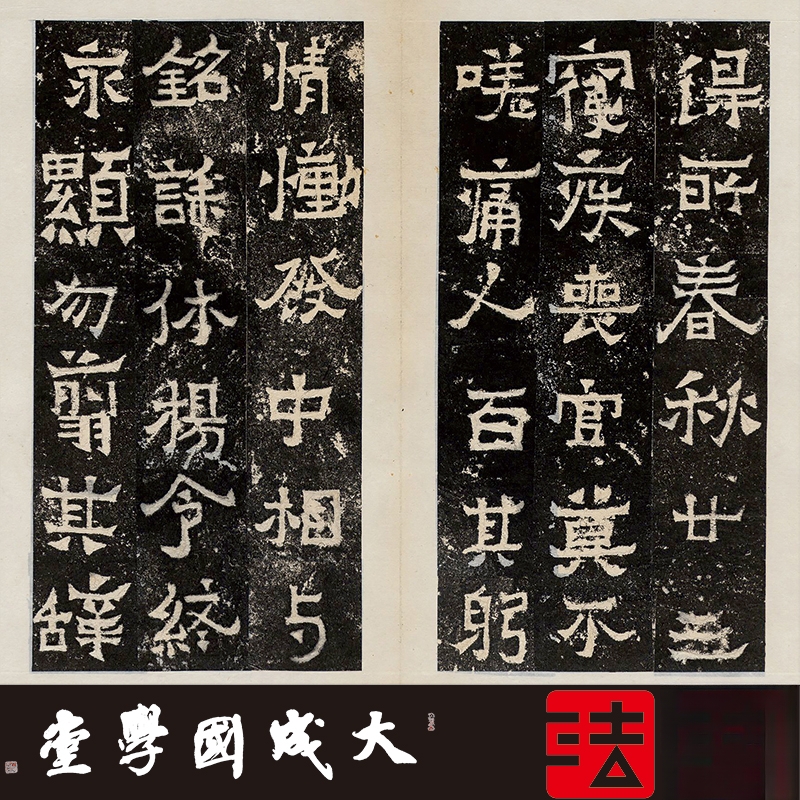 得所春秋廿五
寢疾喪官莫不
嗟痛人百其躬
情慟發中相与
銘謀休揚令終
永顯勿翦其辭
大成國學堂
法